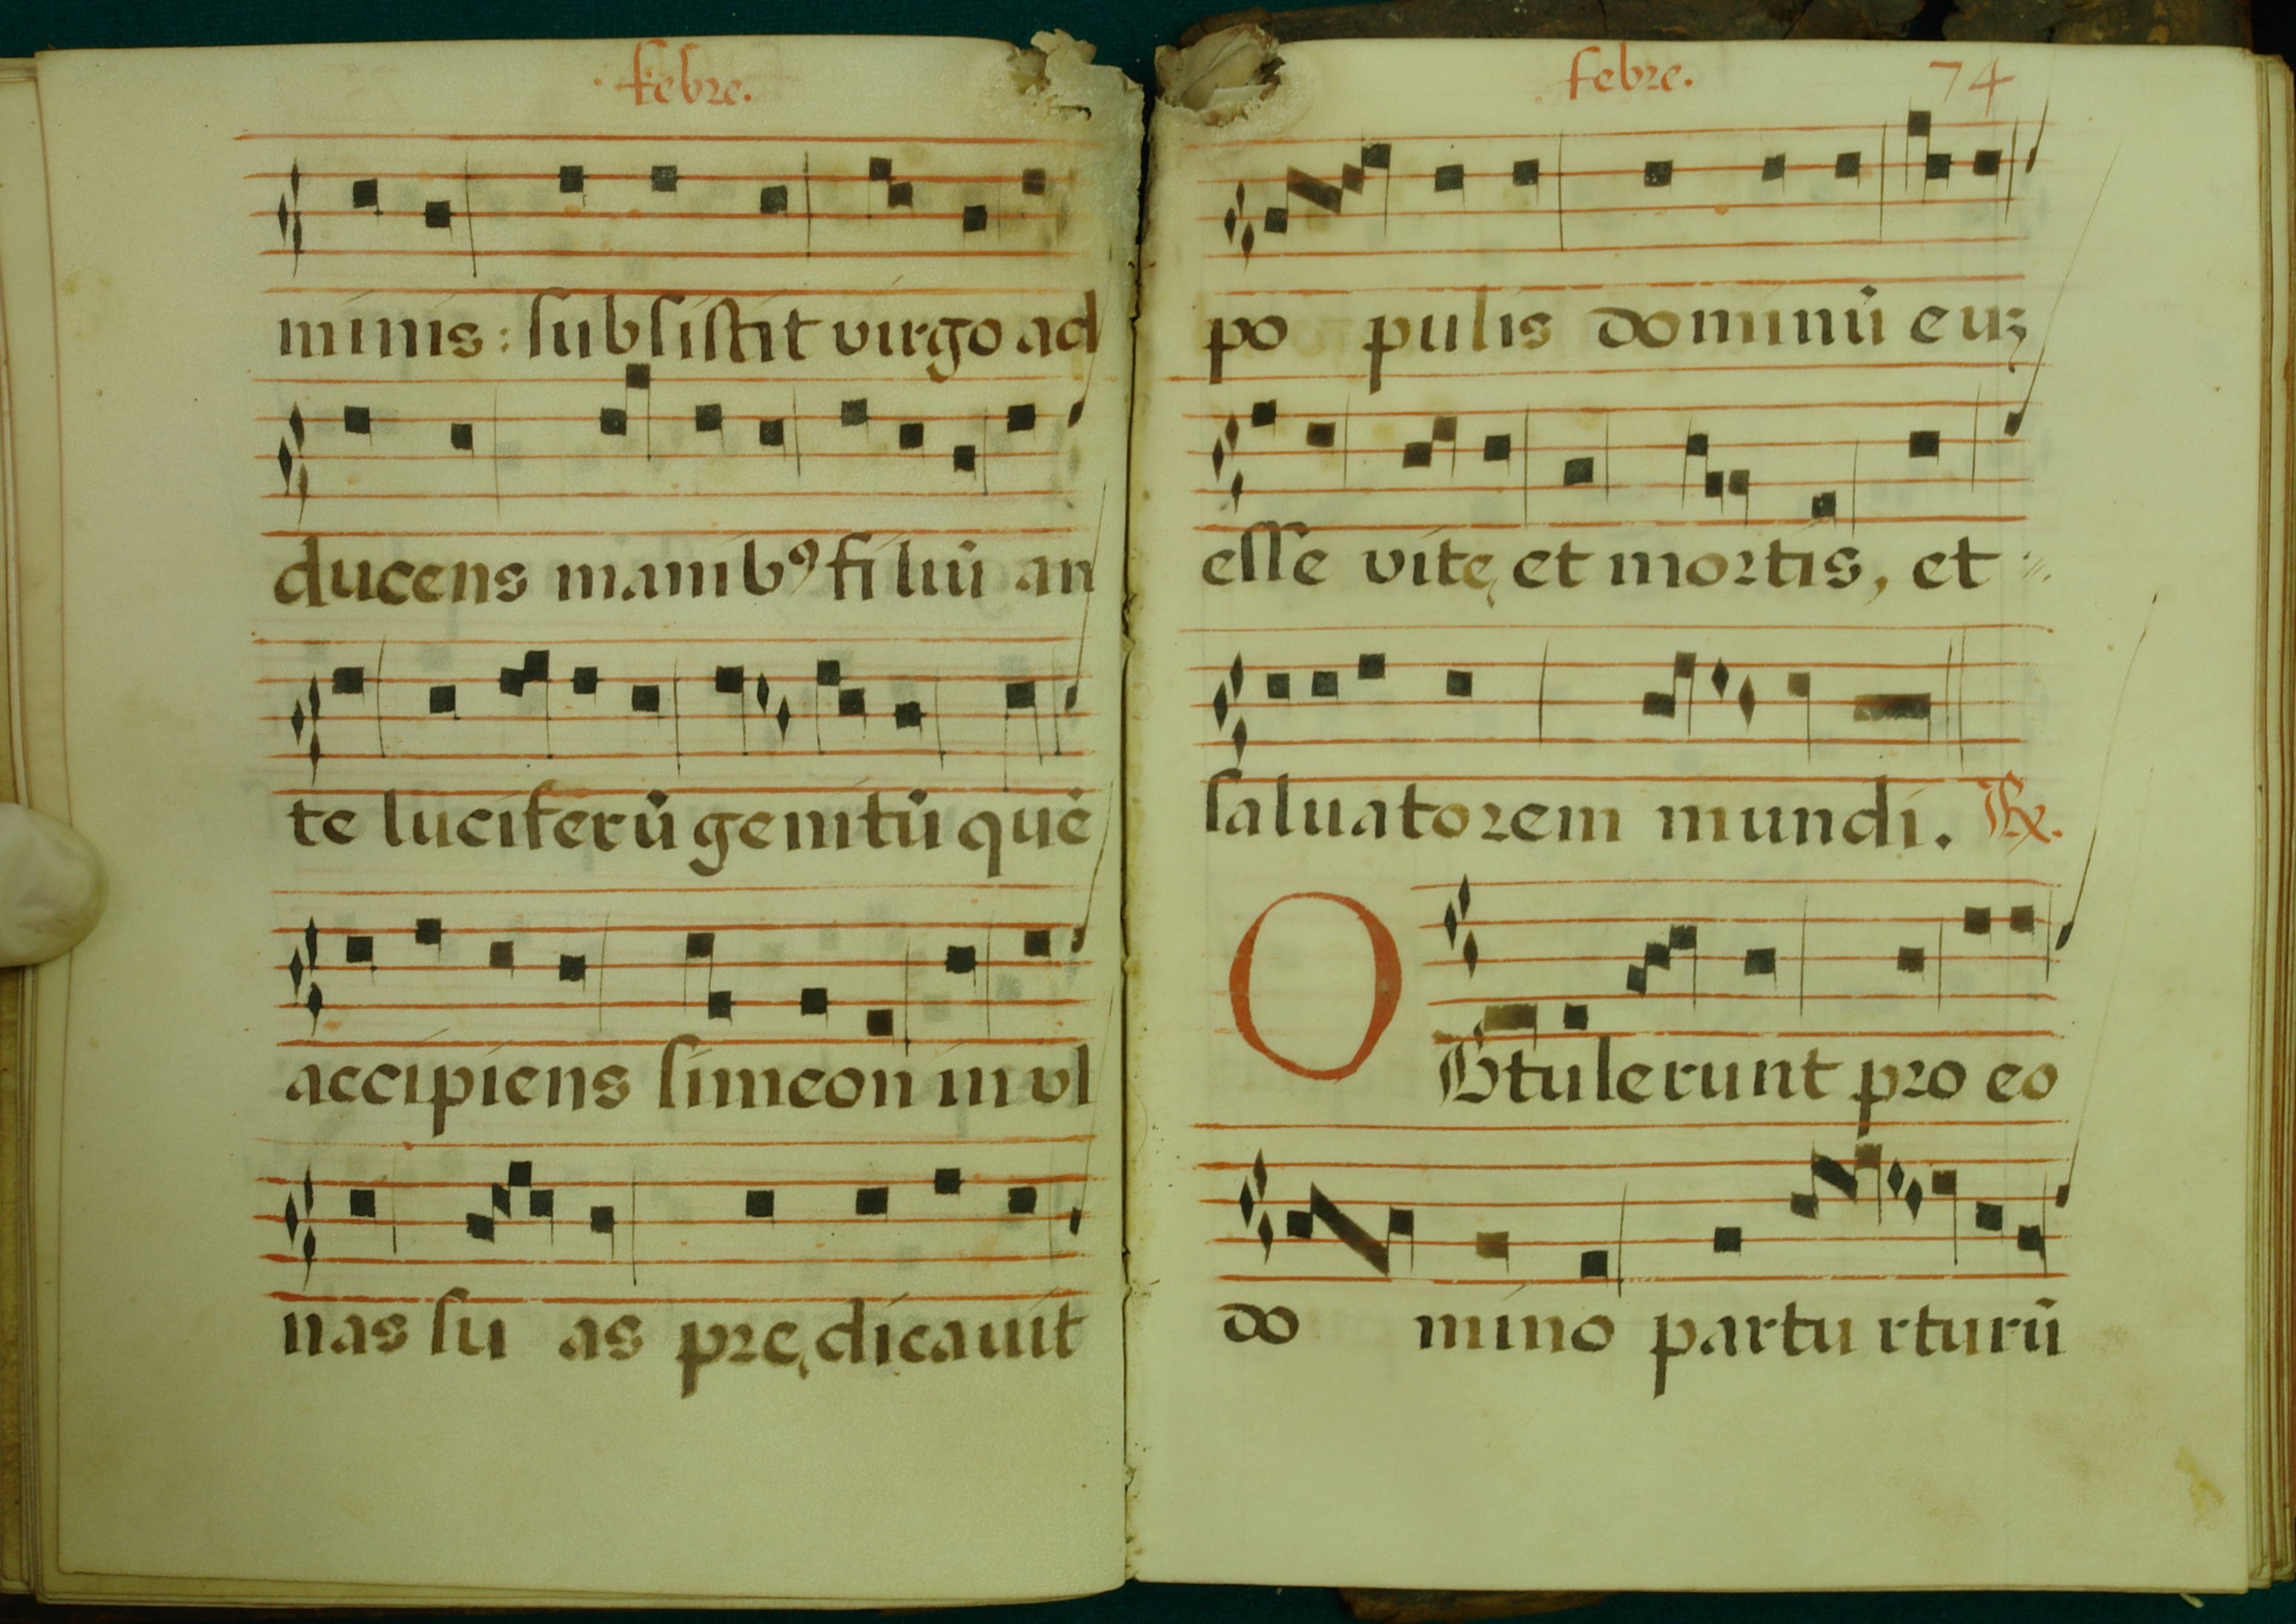 febre.
minis: subsistit virgo ad
ducens manibꝯ filiū an
te luciferū genitū quē
accipiens simeon in vl
nas su as prędicauit
febre. 74
po pulis dominū euꝫ
esse vitę et mortis, et
saluatorem mundi. ℟.
OBtulerunt pro eo
do mino partu rturū